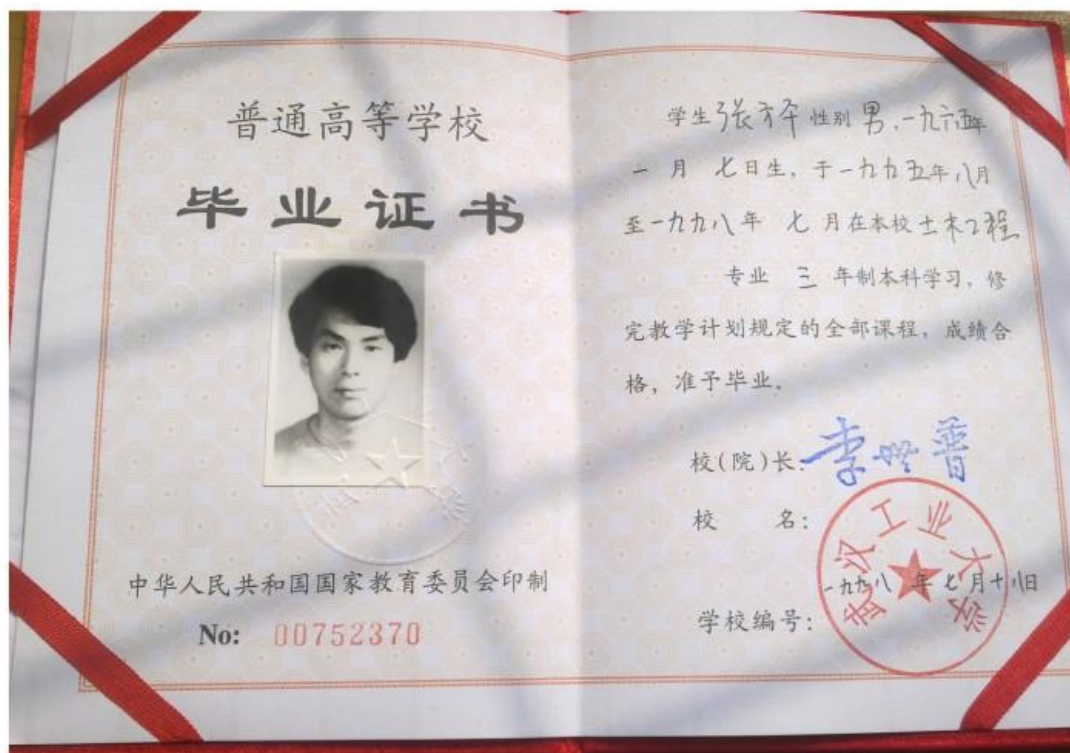 普通高等学校
毕业证书
中华人民共和国国家教育委员会印制
No: 00752370
学生张方 性别男,一九六五年
一月 七日生,于一九九五年八月
至一九九八年 七月在本校土木工程
专业 三 年制本科学习,修
完教学计划规定的全部课程,成绩合
格,准予毕业。
校(院)长:李世普
校 名:
武汉工业大学
一九九八年七月十八日
学校编号: